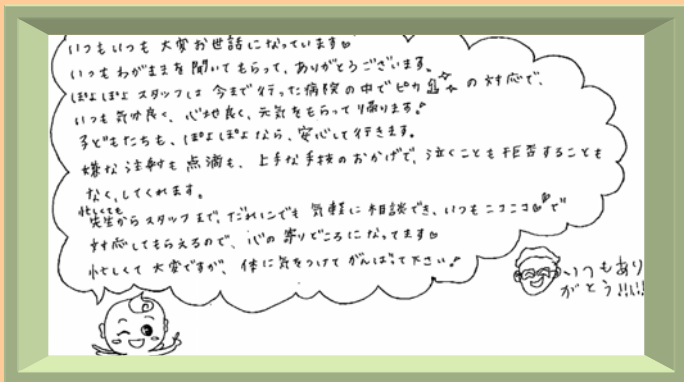 いつもいつも 大変お世話になっています♡
いつもわがままを聞いてもらって、ありがとうございます。
ぽよぽよ スタッフは 今まで行った病院の中でピカ1 の 対応で、
いつも 気分良く、心地良く、元気をもらって帰ります!
子どもたちも、ぽよぽよなら、安心して行きます。
嫌な注射も 点滴も、上手な手技のおかげで、泣くことも拒否することも
なく、してくれます。
忙しくても
先生からスタッフまで、だれにでも 気軽に 相談でき、いつもニコニコ で
対応してもらえるので、心の寄りどころになってます♡
忙しくて 大変ですが、体に気をつけて がんばって下さい!
いつもあり
がとう!!!